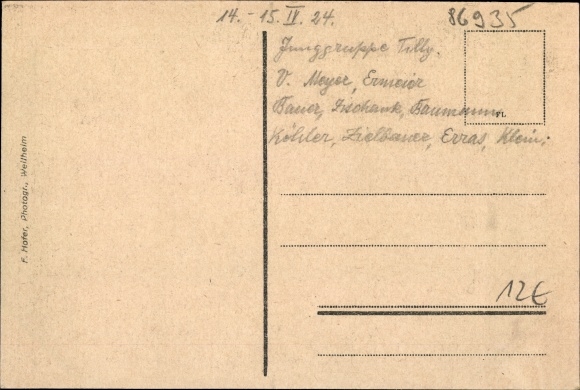 14. - 15. IV. 24.
86935
Junggruppe Tilly.
V. Meyer, Ermeier
Bauer, Baumann
FL
Köhler, Zielbauer, Erras, Klein;
F. Hofer, Photogr., Weilheim
12€